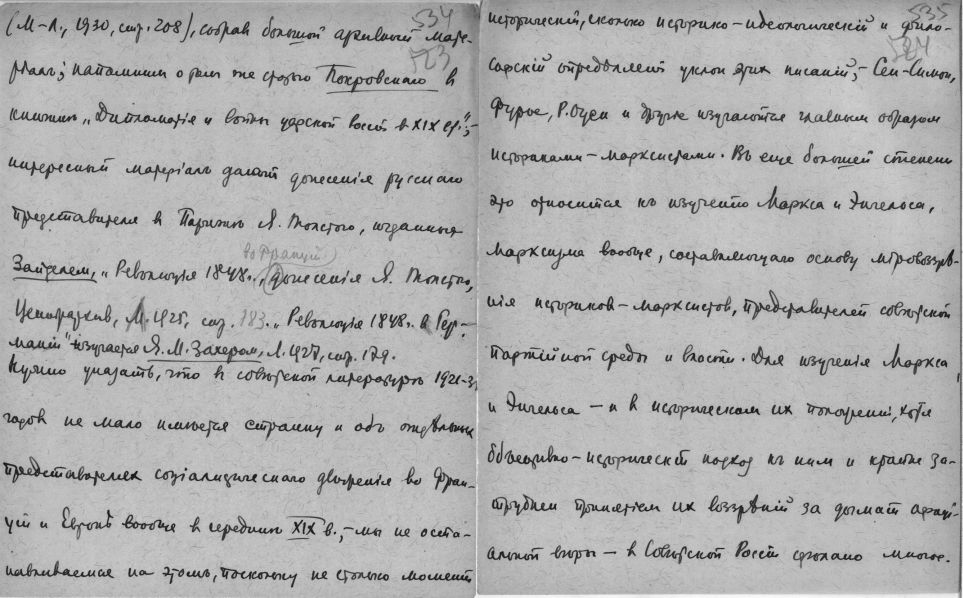 534
523
(М-Л., 1930, стр. 208), собрав большой архивный мате-
рiалъ; напомним о том же статью Покровскаго в
книжкѣ „Дипломатiя и войны царской Россiи в XIX в.";
интересный матерiалъ дают донесенiя русскаго
представителя в Парижѣ Я. Толстого, изданныя
Зайделем, „Революцiя 1848 г. во Францiи, донесенiя Я. Толстого,
Центрархив, Л. 1925, стр. 183. „Революцiя 1848 г. в Гер-
манiи" изучается Я. М. Захером, Л. 1927, стр. 179.
Нужно указать, что в совѣтской литературѣ 1921-3
годов не мало имѣется страниц и объ отдѣльных
представителях соцiалистическаго движенiя во Фран-
цiи и Европѣ вообще в серединѣ XIX в., – мы не оста-
навливаемся на этомъ, поскольку не столько момент
535
524
историческiй, сколько историко-идеологическiй и фило-
софскiй опредѣляет уклон этих писанiй; – Сен-Симон,
Фурье, Р. Оуен и другiе изучаются главным образом
историками-марксистами. Въ еще большей степени
это относится къ изученiю Маркса и Энгельса,
марксизма вообще, составляющаго основу мiровоззрѣ-
нiя историков-марксистов, представителей совѣтской
партiйной среды и власти. Для изученiя Маркса
и Энгельса – и в историческом их пониманiи, хотя
объективно-историческiй подход къ ним и крайне за-
труднен принятiем их воззрѣнiй за догмат офицi-
альной вѣры – в Совѣтской Россiи сдѣлано многое.